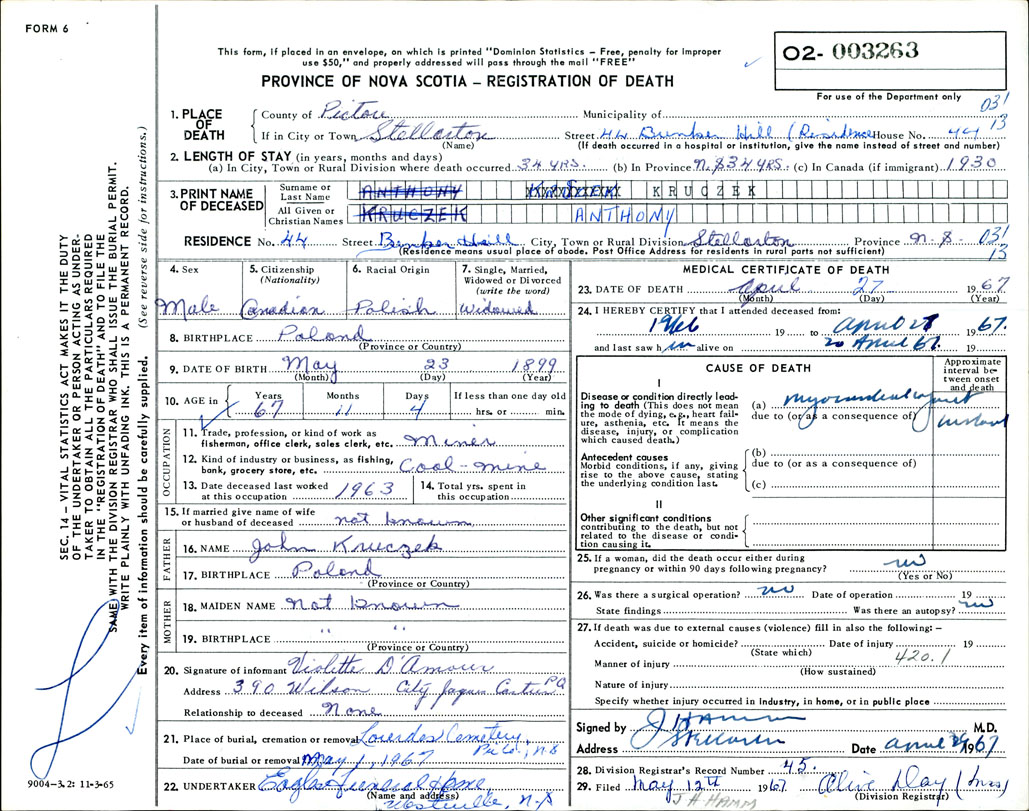 FORM 6
This form, if placed in an envelope, on which is printed "Dominion Statistics – Free, penalty for improper
use $50," and properly addressed will pass through the mail "FREE"
PROVINCE OF NOVA SCOTIA – REGISTRATION OF DEATH
02- 003263
For use of the Department only
031
13
1. PLACE OF DEATH
County of Pictou Municipality of
If in City or Town Stellarton Street 44 Bunker Hill (Residence House No. 44
(Name) (If death occurred in a hospital or institution, give the name instead of street and number)
2. LENGTH OF STAY (in years, months and days)
(a) In City, Town or Rural Division where death occurred 34 YRS. (b) In Province N.S 34 YRS. (c) In Canada (if immigrant) 1930
3. PRINT NAME OF DECEASED
Surname or Last Name ANTHONY KRUCZEK
All Given or Christian Names KRUCZEK ANTHONY
RESIDENCE No. 44 Street Bunker Hill City, Town or Rural Division Stellarton Province N.S- 031
13
(Residence means usual place of abode. Post Office Address for residents in rural parts not sufficient)
4. Sex
Male
5. Citizenship (Nationality)
Canadian
6. Racial Origin
Polish
7. Single, Married, Widowed or Divorced (write the word)
Widowed
8. BIRTHPLACE Poland
(Province or Country)
9. DATE OF BIRTH May 23 1899
(Month) (Day) (Year)
10. AGE in Years Months Days If less than one day old
67 11 4 hrs. or min.
OCCUPATION
11. Trade, profession, or kind of work as
fisherman, office clerk, sales clerk, etc. Miner
12. Kind of industry or business, as fishing,
bank, grocery store, etc. Coal-mine
13. Date deceased last worked
at this occupation 1963
14. Total yrs. spent in
this occupation
15. If married give name of wife
or husband of deceased not known
FATHER
16. NAME John Kruczek
17. BIRTHPLACE Poland
(Province or Country)
MOTHER
18. MAIDEN NAME Not known
19. BIRTHPLACE " "
(Province or Country)
20. Signature of informant Violette D'Amour
Address 390 Wilson City Jaques Cartier PQ
Relationship to deceased None
21. Place of burial, cremation or removal Lourdes Cemetery,
Pic Co., N.S
Date of burial or removal May 1, 1967
22. UNDERTAKER Eagles Funeral Home
(Name and address)
Westville, N.S
MEDICAL CERTIFICATE OF DEATH
23. DATE OF DEATH April 27 1967
(Month) (Day) (Year)
24. I HEREBY CERTIFY that I attended deceased from:
1966 19 to April 27 1967.
and last saw him alive on 20 April 67. 19
CAUSE OF DEATH
Approximate interval between onset and death
I
Disease or condition directly leading to death (This does not
mean the mode of dying, e.g., heart failure, asthenia, etc. It means the
disease, injury, or complication
which caused death.)
(a) myocardial infarct
due to (or as a consequence of) instant
Antecedent causes
Morbid conditions, if any, giving
rise to the above cause, stating
the underlying condition last.
(b)
due to (or as a consequence of)
(c)
II
Other significant conditions
contributing to the death, but not
related to the disease or condition causing it.
25. If a woman, did the death occur either during
pregnancy or within 90 days following pregnancy? no
(Yes or No)
26. Was there a surgical operation? no Date of operation 19
State findings Was there an autopsy? no
27. If death was due to external causes (violence) fill in also the following: –
Accident, suicide or homicide? Date of injury 19
(State which) 420.1
Manner of injury
(How sustained)
Nature of injury
Specify whether injury occurred in industry, in home, or in public place
Signed by J H Hamm M.D.
Address Stellarton Date April 29 1967
28. Division Registrar's Record Number 45.
29. Filed May 12th 1967. Olive Day (Mrs)
(Division Registrar)
J H HAMM
SEC. 14 – VITAL STATISTICS ACT MAKES IT THE DUTY
OF THE UNDERTAKER OR PERSON ACTING AS UNDER-
TAKER TO OBTAIN ALL THE PARTICULARS REQUIRED
IN THE "REGISTRATION OF DEATH" AND TO FILE THE
SAME WITH THE DIVISION REGISTRAR WHO SHALL ISSUE BURIAL PERMIT.
WRITE PLAINLY WITH UNFADING INK. THIS IS A PERMANENT RECORD.
Every item of information should be carefully supplied. (See reverse side for instructions.)
9004–3.2: 11-3-65